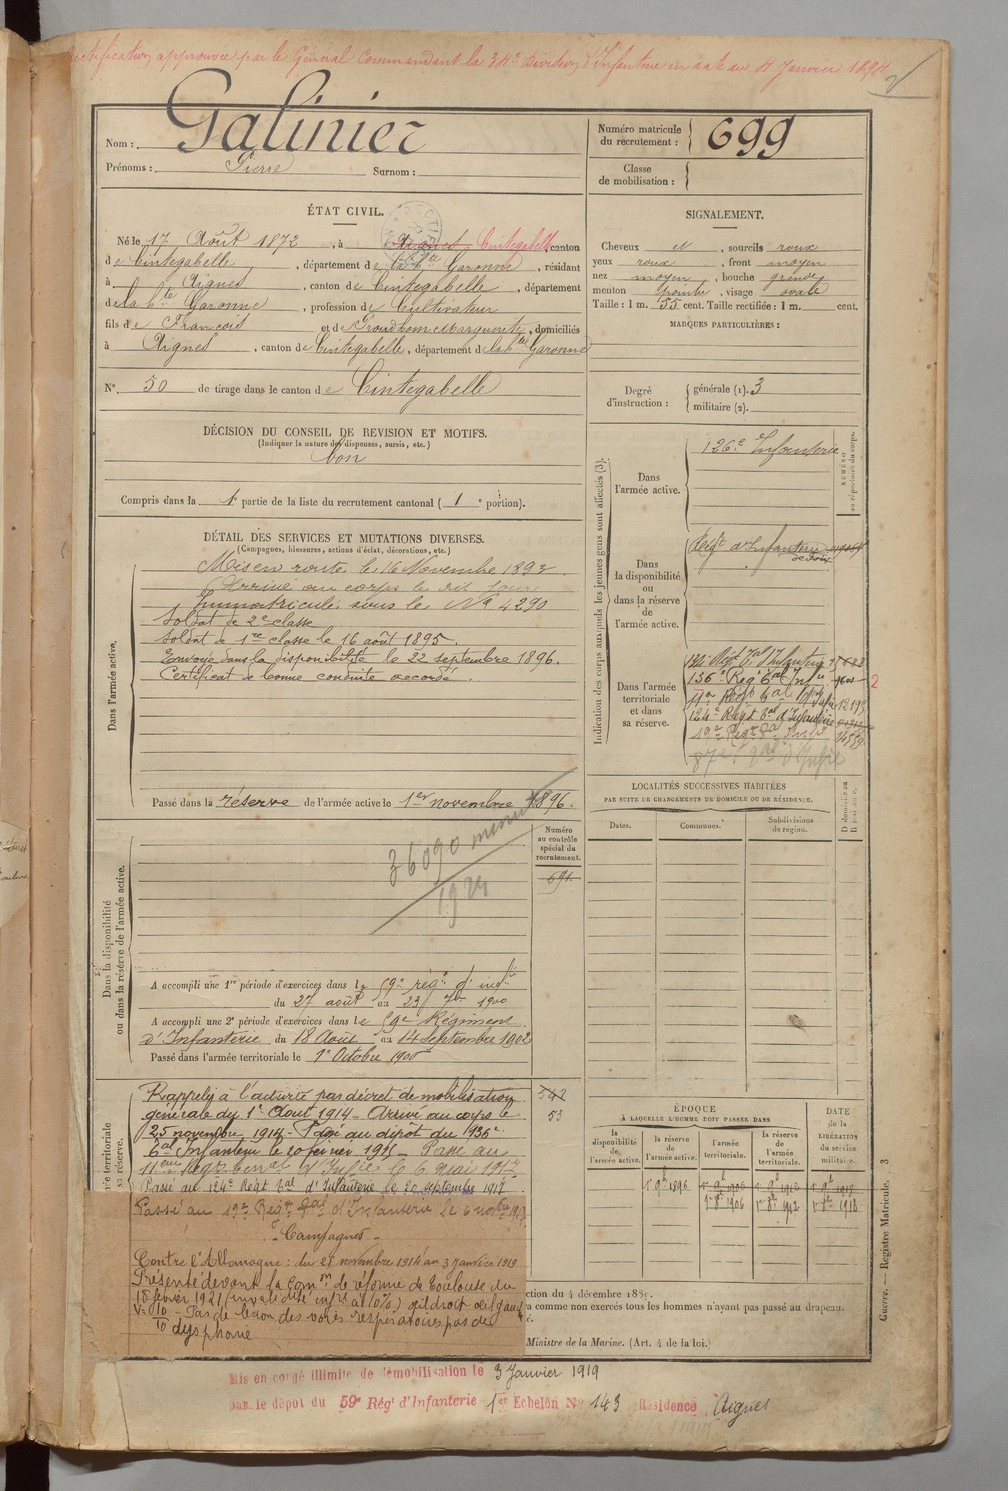 Rectification approuvée par le Général Commandant la 34e Division d'Infanterie en date du 4 Janvier 1894
Nom : Galinier
Prénoms : Pierre Surnom :
Numéro matricule du recrutement : 699
Classe de mobilisation :
ÉTAT CIVIL.
Né le 17 Août 1872, à Aignes Cintegabelle, canton
de Cintegabelle, département de la hte Garonne, résidant
à Aignes, canton de Cintegabelle, département
de la hte Garonne, profession de Cultivateur
fils de François et de Proudhom Marguerite, domiciliés
à Aignes, canton de Cintegabelle, département de la hte Garonne
No. 50 de tirage dans le canton de Cintegabelle
DÉCISION DU CONSEIL DE REVISION ET MOTIFS.
(Indiquer la nature des dispenses, sursis, etc.)
bon
Compris dans la 1e partie de la liste du recrutement cantonal ( 1 e portion).
SIGNALEMENT.
Cheveux et, sourcils roux
yeux roux, front moyen
nez moyen, bouche grande
menton pointu, visage ovale
Taille : 1 m. 55 cent. Taille rectifiée : 1 m. cent.
MARQUES PARTICULIÈRES :
Degré d'instruction :
générale (1). 3
militaire (2).
DÉTAIL DES SERVICES ET MUTATIONS DIVERSES.
(Campagnes, blessures, actions d'éclat, décorations, etc.)
Dans l'armée active.
Mis en route le 16 Novembre 1893
Arrivé au corps le dit jour
Immatriculé sous le No 4290
Soldat de 2e classe
Soldat de 1re classe le 16 août 1895.
Envoyé dans la disponibilité le 22 septembre 1896.
Certificat de bonne conduite accordé.
Passé dans la réserve de l'armée active le 1er novembre 1896.
Indication des corps auxquels les jeunes gens sont affectés (3).
NUMÉRO au répertoire du corps.
Dans l'armée active.
126e Infanterie
Dans la disponibilité ou dans la réserve de l'armée active.
Régt d'Infanterie
Dans l'armée territoriale et dans sa réserve.
134 Régt Tal d'Infanterie
136e Régt Tal Infie 9600
2
11e Régt Tal Infie 12193
124e Régt Tal d'Infanterie
19e Régt Tal Infie
87e Tal d'Infie
Dans la disponibilité ou dans la réserve de l'armée active.
Numéro au contrôle spécial du recrutement.
691
36090 minute
1924
A accompli une 1re période d'exercices dans le 59e régt d'infie
du 27 août au 23 7bre 1900
A accompli une 2e période d'exercices dans le 59e Régiment
d'Infanterie du 18 Août au 14 septembre 1902
Passé dans l'armée territoriale le 1er Octobre 1906
LOCALITÉS SUCCESSIVES HABITÉES
PAR SUITE DE CHANGEMENTS DE DOMICILE OU DE RÉSIDENCE.
Dates. Communes. Subdivisions de région. D domicile ou R résidence.
Rappelé à l'activité par décret de mobilisation 542
générale du 1er Août 1914 - Arrivé au corps le 53
25 novembre 1914 - Passé au dépôt du 136e
Tal Infanterie le 20 février 1915 Passé au
11eme Régt Terral d'Infie le 6 mai 1917
Passé au 124e Régt Tal d'Infanterie le 20 septembre 1917
Passé au 19e Régt Tal d'Infanterie le 6 novbre 1917
- Campagnes -
Contre l'Allemagne : du 25 novembre 1914 au 3 janvier 1919
Présenté devant la Comm de réforme de Toulouse du
18 février 1921 (invalidité infre à 10%) œil droit œil gauche
V. 10/10 - Pas de lésion des voies respiratoires pas de
dysphonie
ÉPOQUE
À LAQUELLE L'HOMME DOIT PASSER DANS
DATE de la LIBÉRATION du service militaire.
la disponibilité de l'armée active. la réserve de l'armée active. l'armée territoriale. la réserve de l'armée territoriale.
1er 9bre 1896 1er 9bre 1906 1er 9bre 1912 1er 9bre 1919
1er 8bre 1906 1er 8bre 1912 1er 8bre 1918
ction du 4 décembre 1889.
a comme non exercés tous les hommes n'ayant pas passé au drapeau.
Ministre de la Marine. (Art. 4 de la loi.)
Guerre. — Registre Matricule. 3
Mis en congé illimité de démobilisation le 3 Janvier 1919
par le dépôt du 59e Régt d'Infanterie 1er Echelon No 143 Résidence Aignes